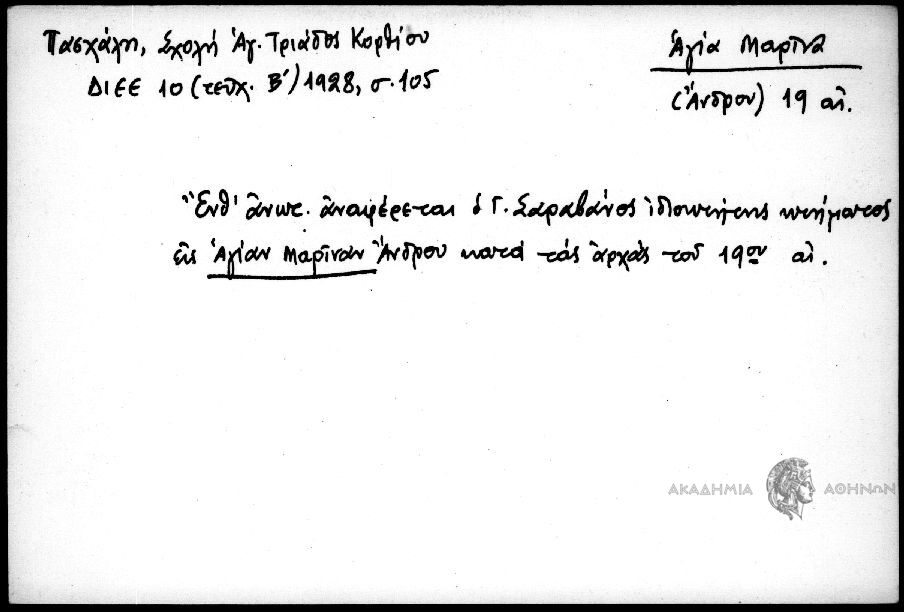 Πασχάλη, Σχολή Ἁγ. Τριάδος Κορθίου
ΔΙΕΕ 10 (τεῦχ. Β΄) 1928, σ. 105
Ἁγία Μαρῖνα
(Ἄνδρου) 19 αἰ.
Ἔνθ' ἄνωτ. ἀναφέρεται ὁ Γ. Σαραβάνος ἰδιοκτήτης κτήματος
εἰς Ἁγίαν Μαρῖναν Ἄνδρου κατά τάς ἀρχάς τοῦ 19ου αἰ.
ΑΚΑΔΗΜΙΑ ΑΘΗΝΩΝ